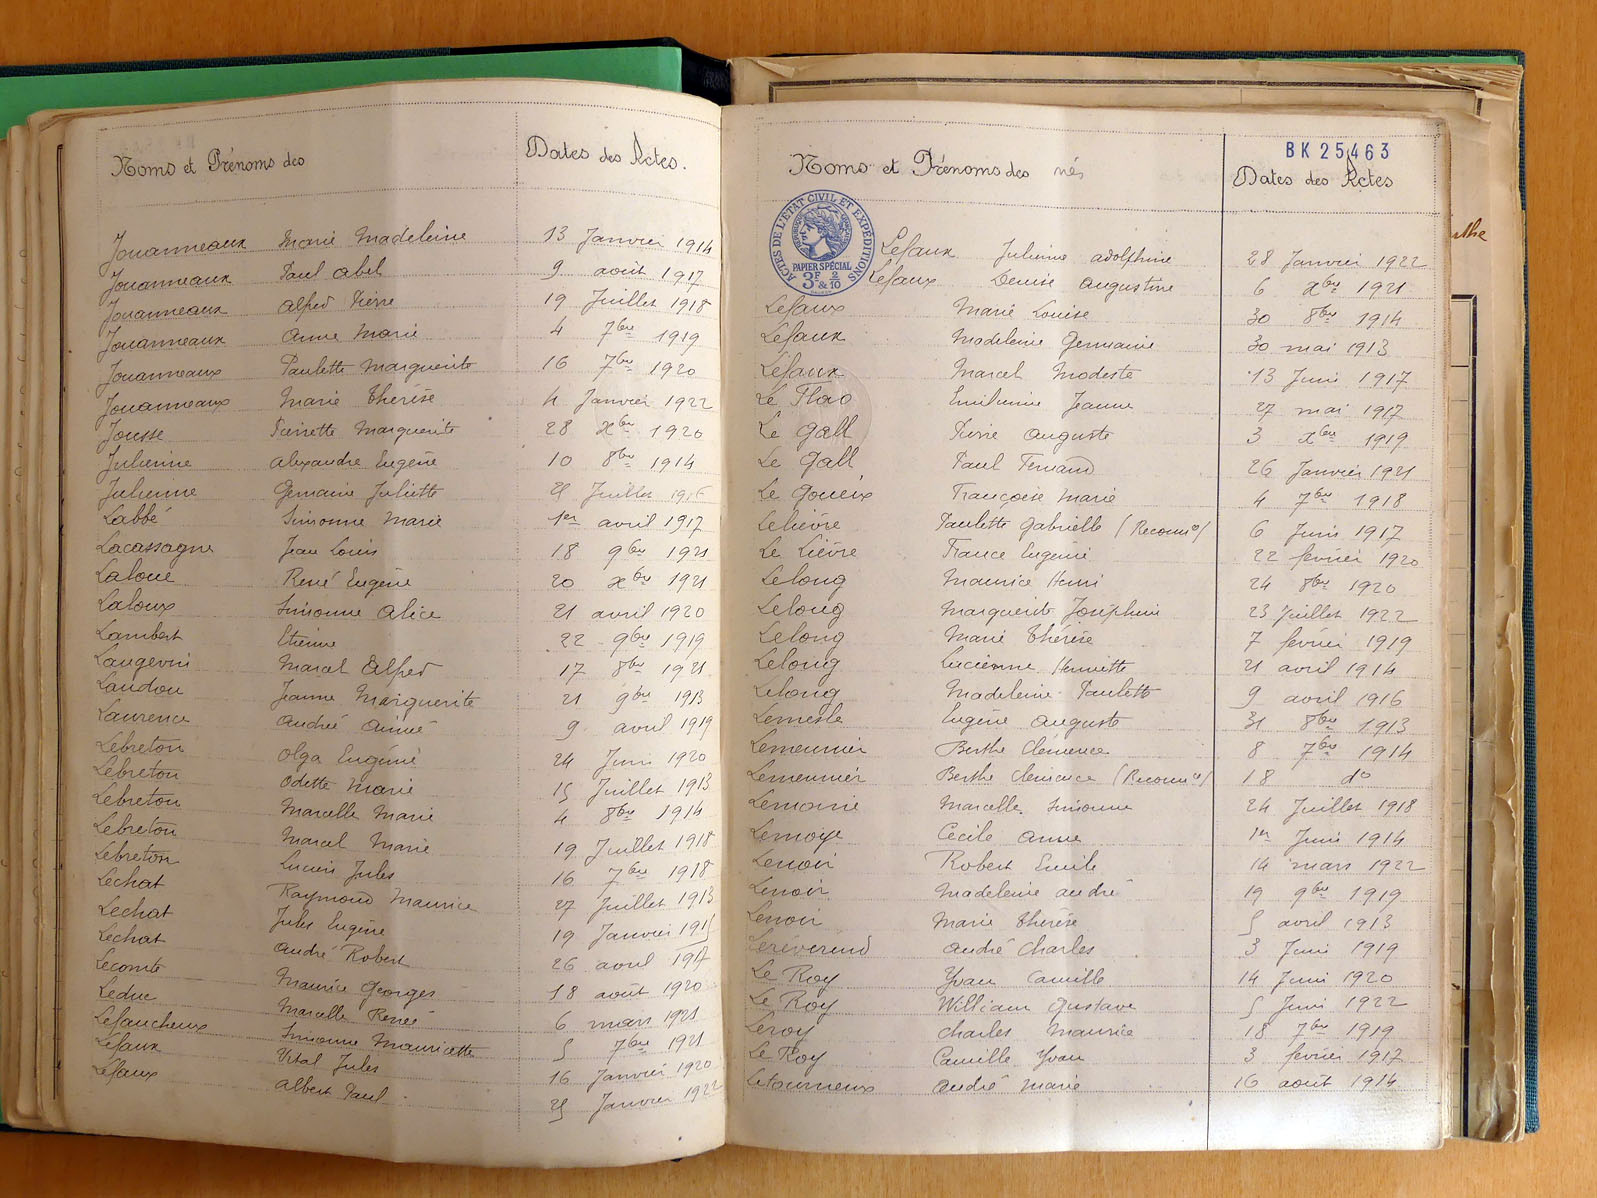 Noms et Prénoms des Dates des Actes.
Jouanneaux Marie Madeleine 13 Janvier 1914
Jouanneaux Paul Abel 9 août 1917
Jouanneaux Alfred Pierre 19 Juillet 1918
Jouanneaux Anne Marie 4 7bre 1919
Jouanneaux Paulette Marguerite 16 7bre 1920
Jouanneaux Marie Thérèse 4 Janvier 1922
Jousse Pierrette Marguerite 28 Xbre 1920
Julienne Alexandre Eugène 10 8bre 1914
Julienne Germaine Juliette 21 Juillet 1916
Labbé Simonne Marie 1er avril 1917
Lacassagne Jean Louis 18 9bre 1921
Laloue René Eugène 20 Xbre 1921
Laloux Simonne Alice 21 avril 1920
Lambert Etienne 22 9bre 1919
Langevin Marcel Alfred 17 8bre 1921
Landou Jeanne Marguerite 21 9bre 1913
Laurence André Aimé 9 avril 1919
Lebreton Olga Eugénie 24 Juin 1920
Lebreton Odette Marie 15 Juillet 1913
Lebreton Marcelle Marie 4 8bre 1914
Lebreton Marcel Marie 19 Juillet 1918
Lebreton Lucien Jules 16 7bre 1918
Lechat Raymond Maurice 27 Juillet 1913
Lechat Jules Eugène 19 Janvier 1915
Lechat André Robert 26 avril 1917
Lecomte Maurice Georges 18 août 1920
Leduc Marcelle Renée 6 mars 1921
Lefaucheux Simonne Mauricette 5 7bre 1921
Lefaux Vital Jules 16 Janvier 1920
Lefaux Albert Paul 25 Janvier 1922
BK 25463
Noms et Prénoms des nés Dates des Actes
ACTES DE L'ÉTAT CIVIL ET EXPÉDITIONS
PAPIER SPÉCIAL
3F & 2/10
Lefaux Julienne Adolphine 28 Janvier 1922
Lefaux Denise Augustine 6 Xbre 1921
Lefaux Marie Louise 30 8bre 1914
Lefaux Madeleine Germaine 30 mai 1913
Lefaux Marcel Modeste 13 Juin 1917
Le Flao Emilienne Jeanne 27 mai 1917
Le Gall Pierre Auguste 3 Xbre 1919
Le Gall Paul Fernand 26 Janvier 1921
Le Goueix Françoise Marie 4 7bre 1918
Lelièvre Paulette Gabrielle (Reconnce) 6 Juin 1917
Le Lièvre France Eugénie 22 février 1920
Lelong Maurice Henri 24 8bre 1920
Lelong Marguerite Joséphine 23 Juillet 1922
Lelong Marie Thérèse 7 février 1919
Lelong Lucienne Henriette 21 avril 1914
Lelong Madeleine Paulette 9 avril 1916
Lemesle Eugène Auguste 31 8bre 1913
Lemeunier Berthe Clémence 8 7bre 1914
Lemeunier Berthe Clémence (Reconnce) 18 do
Lemoine Marcelle Simonne 24 Juillet 1918
Lemoye Cécile Anne 1er Juin 1914
Lenoir Robert Emile 14 mars 1922
Lenoir Madeleine André 19 9bre 1919
Lenoir Marie Thérèse 5 avril 1913
Lereverend André Charles 3 Juin 1919
Le Roy Yvan Camille 14 Juin 1920
Le Roy William Gustave 5 Juin 1922
Leroy Charles Maurice 18 7bre 1919
Le Roy Camille Yvan 3 février 1917
Letourneux André Marie 16 août 1914